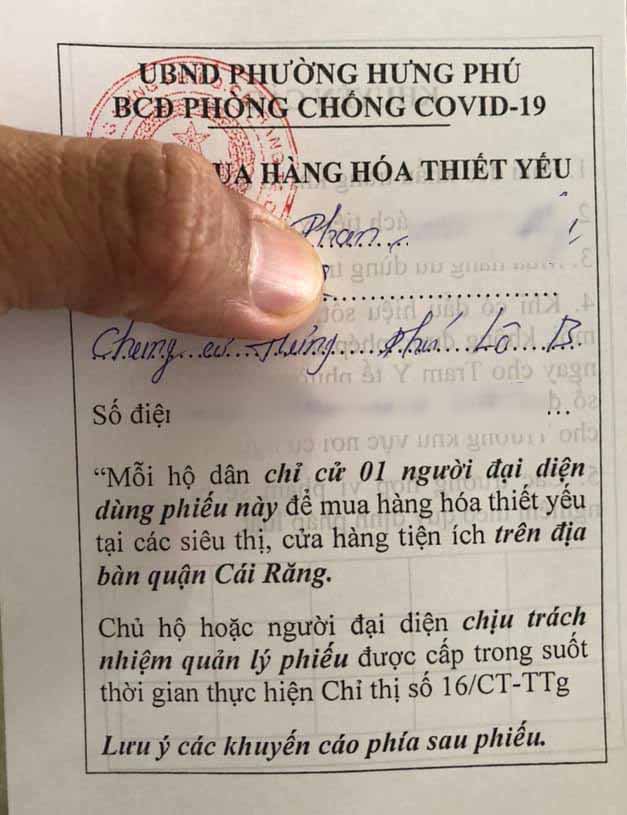 UBND PHƯỜNG HƯNG PHÚ
BCĐ PHÒNG CHỐNG COVID-19
UA HÀNG HÓA THIẾT YẾU
Phan
Chung cư Hưng Phú Lô B
Số điệ
“Mỗi hộ dân chỉ cử 01 người đại diện
dùng phiếu này để mua hàng hóa thiết yếu
tại các siêu thị, cửa hàng tiện ích trên địa
bàn quận Cái Răng.
Chủ hộ hoặc người đại diện chịu trách
nhiệm quản lý phiếu được cấp trong suốt
thời gian thực hiện Chỉ thị số 16/CT-TTg
Lưu ý các khuyến cáo phía sau phiếu.